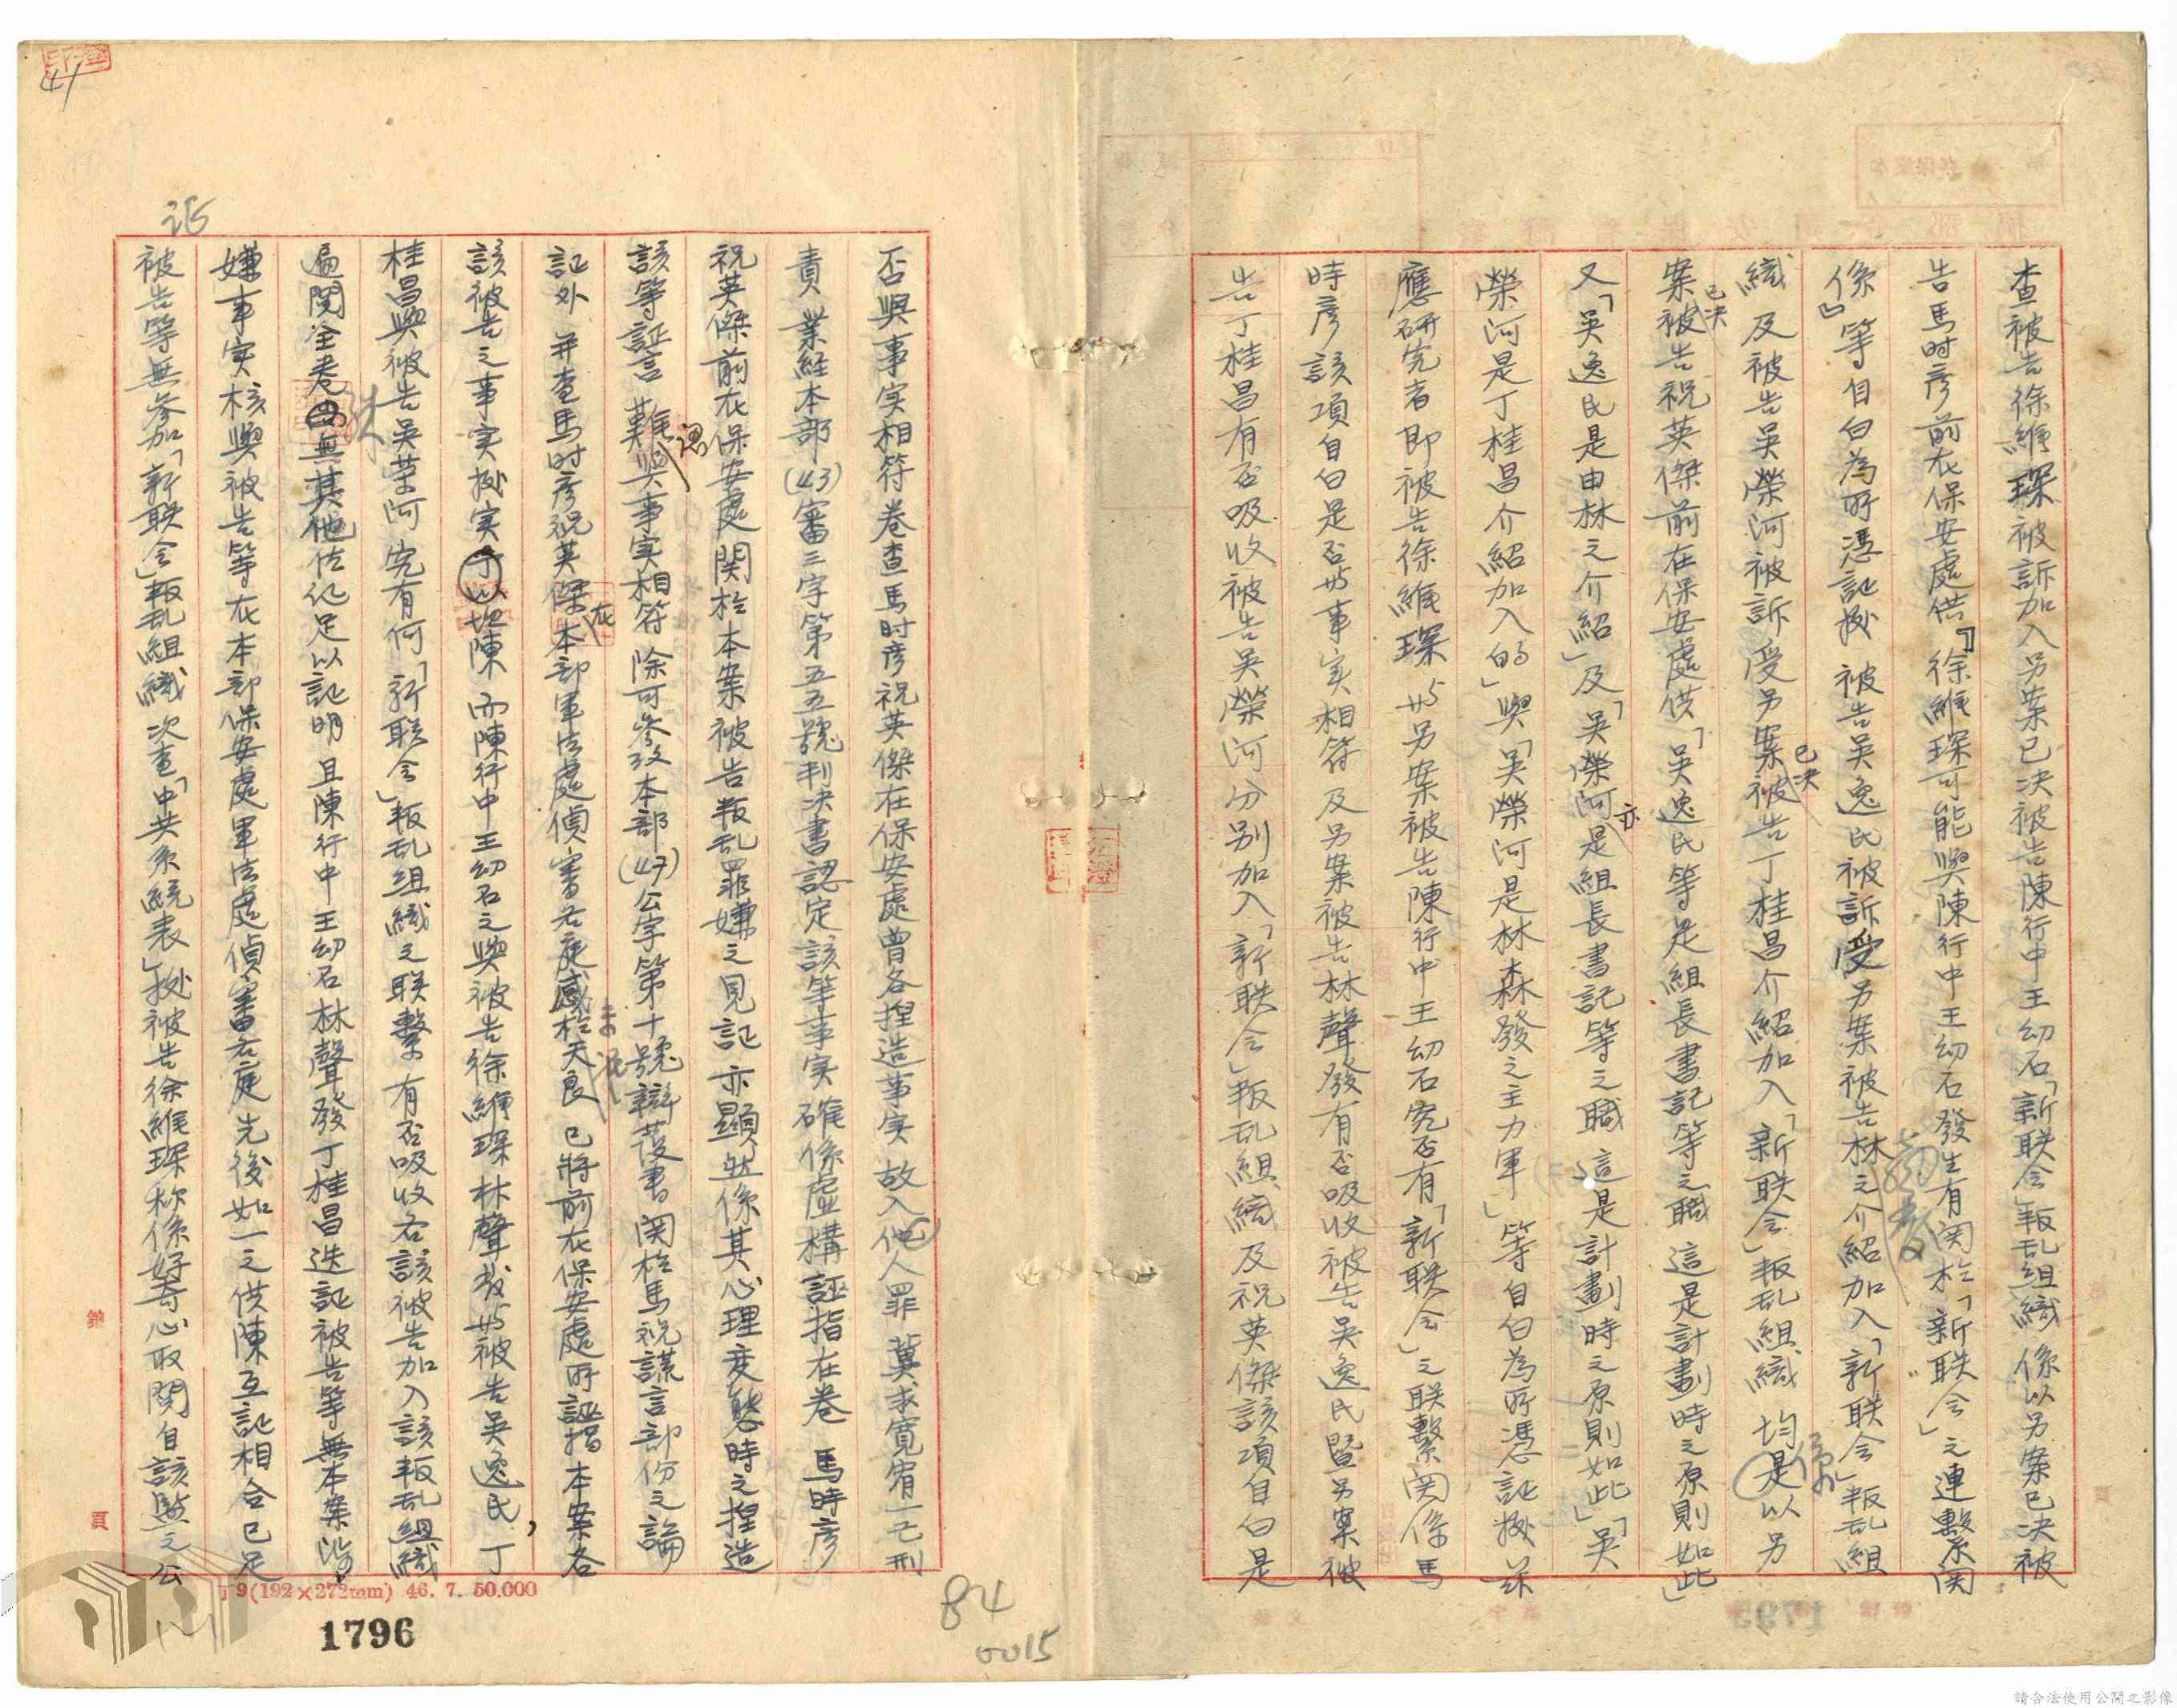 查被告徐維琛被訴加入另案已決被告陳行中王幼石「新联会」叛乱組織係以另案已决被
告馬时彦前在保安處供「徐維琛可能與陳行中王幼石發生有関於「新联会」之連繫関
係」等自白為所憑証據被告吳逸民被訴受另案被告林之介紹加入「新联会」叛乱組
織及被告吳榮河被訴受另案已决被告丁桂昌介紹加入「新联会」叛乱組織均係以另
案已决被告祝英傑前在保安處供「吳逸民等是組長書記等之職這是計劃時之原則如此」
又「吳逸民是由林之介紹」及「吳榮河亦是組長書記等之職這是計劃時之原則如此」「吳
榮河是丁桂昌介紹加入的」與「吳榮河是林森發之主力軍」等自白為所憑証據茲
應研究者即被告徐維琛與另案被告陳行中王幼石究否有「新联会」之联繫関係馬
時彦該項自白是否與事实相符及另案被告林聲發有否吸收被告吳逸民暨另案被
告丁桂昌有否吸收被告吳榮河分別加入「新联会」叛乱組織及祝英傑該項自白是
否與事实相符卷查馬时彦祝英傑在保安處曾各捏造事实故入他人罪冀求寬宥一己刑
責業經本部(43)審三字第五五號判决書認定該等事实確係虛構誣指在卷馬時彦
祝英傑前在保安處関於本案被告叛乱罪嫌之見証亦顯然係其心理变態時之捏造
該等証言難認與事实相符除可參攷本部(47)公字第十號辯護書関於馬祝謊言部份之論
証外并查馬时彦祝英傑在本部軍法處偵審各庭感於天良已將前在保安處所誣指本案各
該被告之事实據实予以坦陳而陳行中王幼石之與被告徐維琛林聲發與被告吳逸民,丁
桂昌與被告吳榮河究有何「新联会」叛乱組織之联繫有否吸收各該被告加入該叛乱組織
遍閱全卷四無其他佐証足以証明且陳行中王幼石林聲發丁桂昌迭証被告等無本案涉
嫌事实核與被告等在本部保安處軍法處偵審各庭先後如一之供陳互証相合已足
証
被告等無參加「新联会」叛乱組織次查「中共系統表」據被告徐維琛称係好奇心取閱自該監之公
41
9(192×272mm) 46. 7. 50.000
1796
84
0015
第
頁
請合法使用公開之影像